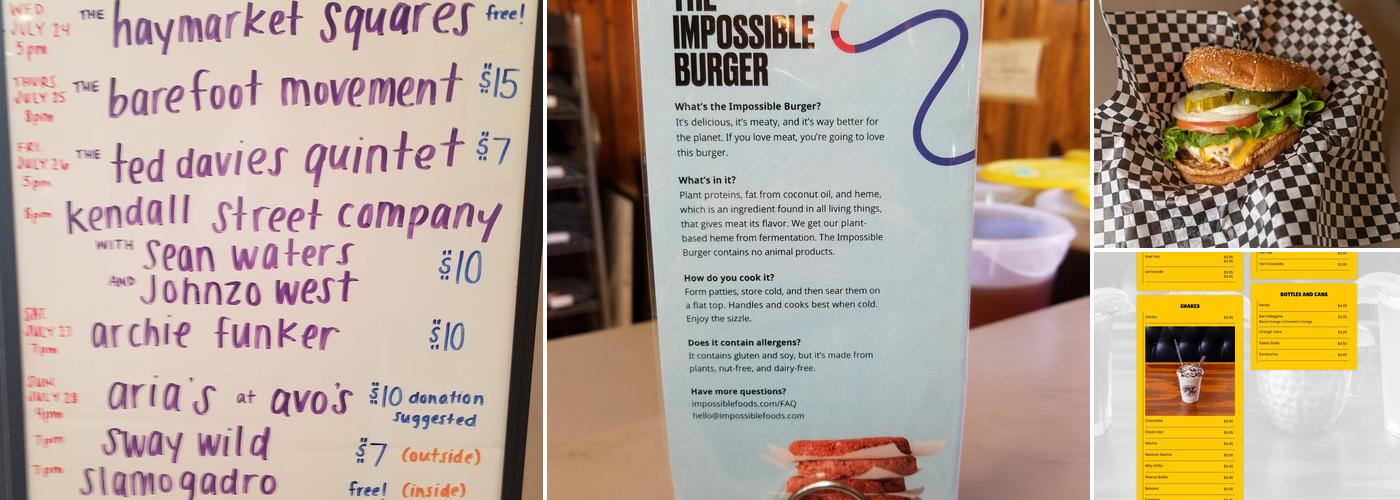 WED.
JULY 24
5pm
THE haymarket squares free!
THURS.
JULY 25
8pm
THE barefoot movement $15
FRI.
JULY 26
5pm
THE ted davies quintet $7
8pm
kendall street company
WITH sean waters
AND Johnzo west
$10
SAT.
JULY 27
7pm
archie funker $10
SUN.
JULY 28
4pm
aria's at avo's $10 donation
suggested
7pm
sway wild $7 (outside)
7pm
slamogadro free! (inside)
THE
IMPOSSIBLE
BURGER
What's the Impossible Burger?
It's delicious, it's meaty, and it's way better for
the planet. If you love meat, you're going to love
this burger.
What's in it?
Plant proteins, fat from coconut oil, and heme,
which is an ingredient found in all living things,
that gives meat its flavor. We get our plant-
based heme from fermentation. The Impossible
Burger contains no animal products.
How do you cook it?
Form patties, store cold, and then sear them on
a flat top. Handles and cooks best when cold.
Enjoy the sizzle.
Does it contain allergens?
It contains gluten and soy, but it's made from
plants, nut-free, and dairy-free.
Have more questions?
impossiblefoods.com/FAQ
hello@impossiblefoods.com
Iced Tea
Lemonade
SHAKES
Vanilla $5.45
Chocolate $5.45
Dream Bar $5.45
Mocha $5.45
Mexican Mocha $5.45
Nitty Gritty $5.45
Peanut Butter $5.45
Banana
Hot Chocolate
BOTTLES AND CANS
Perrier
San Pellegrino
Blood Orange | Limonata | Orange
Orange Juice
Italian Soda
Kombucha